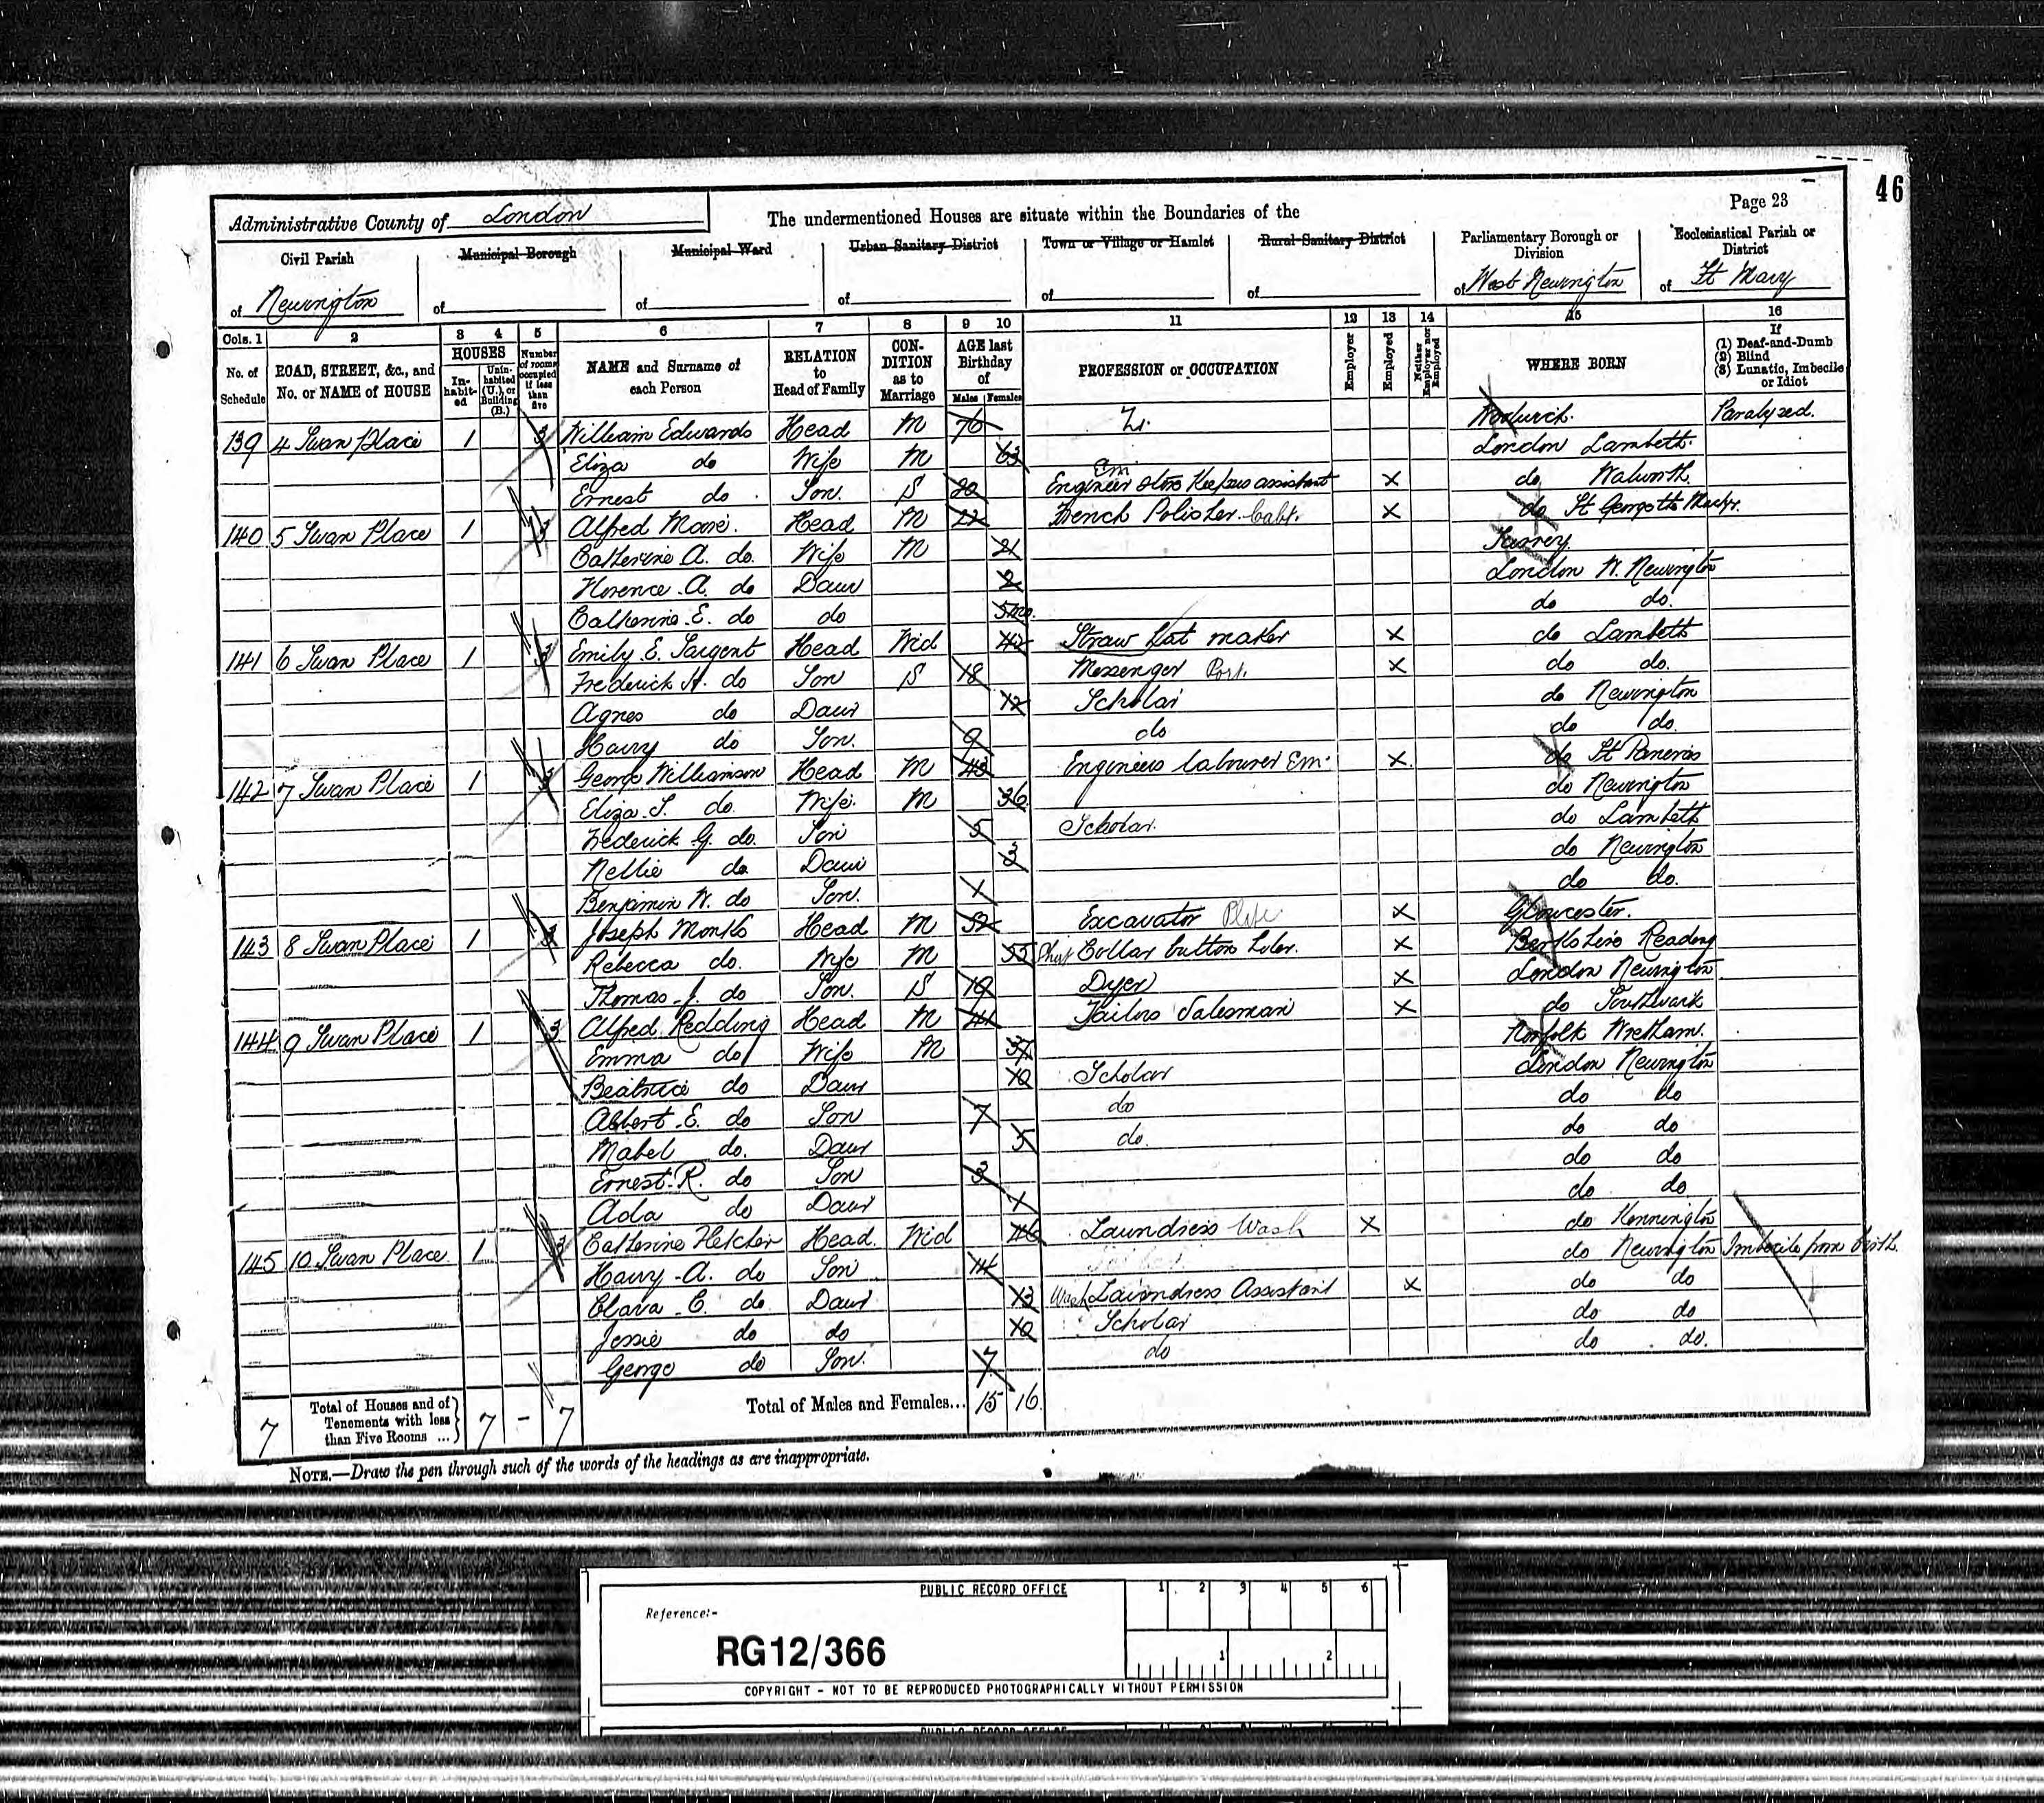 46
Page 23
Administrative County of London
The undermentioned Houses are situate within the Boundaries of the
Civil Parish of Newington
Municipal Borough of
Municipal Ward of
Urban Sanitary District of
Town or Village or Hamlet of
Rural Sanitary District of
Parliamentary Borough or Division of West Newington
Ecclesiastical Parish or District of St Mary
Cols. 1 2 3 4 5 6 7 8 9 10 11 12 13 14 15 16
No. of Schedule
ROAD, STREET, &c., and No. or NAME of HOUSE
HOUSES
Inhabited
Uninhabited (U.), or Building (B.)
Number of rooms occupied if less than five
NAME and Surname of each Person
RELATION to Head of Family
CONDITION as to Marriage
AGE last Birthday of
Males Females
PROFESSION or OCCUPATION
Employer
Employed
Neither Employer nor Employed
WHERE BORN
If (1) Deaf-and-Dumb (2) Blind (3) Lunatic, Imbecile or Idiot
139 4 Swan Place 1 3 William Edwards Head M 76 Paralyzed.
Eliza do Wife M 63 London Lambeth
Ernest do Son S 20 Engineer store Keepers assistant Em X do Walworth
140 5 Swan Place 1 3 Alfred Head M 22 French Polisher Cabt. X do St George the Martyr.
Catherine A. do Wife M 21 Surrey
Florence A. do Daur 2 London W. Newington
Catherine E. do do 5mo. do do.
141 6 Swan Place 1 3 Emily E. Sargent Head Wid 42 Straw Hat maker X do Lambeth
Frederick H. do Son S 18 Messenger Port. X do do.
Agnes do Daur 12 Scholar do Newington
Harry do Son. 9 do do do.
142 7 Swan Place 1 3 George Williamson Head M 43 Engineers labourer Em. X do St Pancras
Eliza S. do. Wife. M 36 do Newington
Frederick G. do. Son 5 Scholar. do Lambeth
Nellie do Daur 3 do Newington
Benjamin W. do Son. 1 do do.
143 8 Swan Place 1 3 Joseph Monks Head M 52 Excavator X Gloucester.
Rebecca do. Wife M 55 Shirt Collar button holer. X Berkshire Reading
Thomas J. do Son. S 19 Dyer X London Newington
144 9 Swan Place 1 3 Alfred Redding Head M 41 Tailors Salesman X do Southwark
Emma do Wife M 37 Norfolk Wretham.
Beatrice do Daur 10 Scholar London Newington
Albert E. do Son 7 do do do
Mabel do. Daur 5 do. do do
Ernest R. do Son 3 do do
Ada do Daur 1 do do
145 10 Swan Place 1 3 Catherine Fletcher Head. Wid 46 Laundress Wash X do Kennington
Harry A. do Son 14 do Newington Imbecile from birth.
Clara E. do Daur 13 Wash Laundress Assistant X do do
Jessie do do 10 Scholar do do
George do Son. 7 do do do.
7 Total of Houses and of Tenements with less than Five Rooms ... 7 - 7
Total of Males and Females... 15 16
NOTE.—Draw the pen through such of the words of the headings as are inappropriate.
PUBLIC RECORD OFFICE
1 2 3 4 5 6
Reference:-
RG12/366
1 2
COPYRIGHT - NOT TO BE REPRODUCED PHOTOGRAPHICALLY WITHOUT PERMISSION
PUBLIC RECORD OFFICE